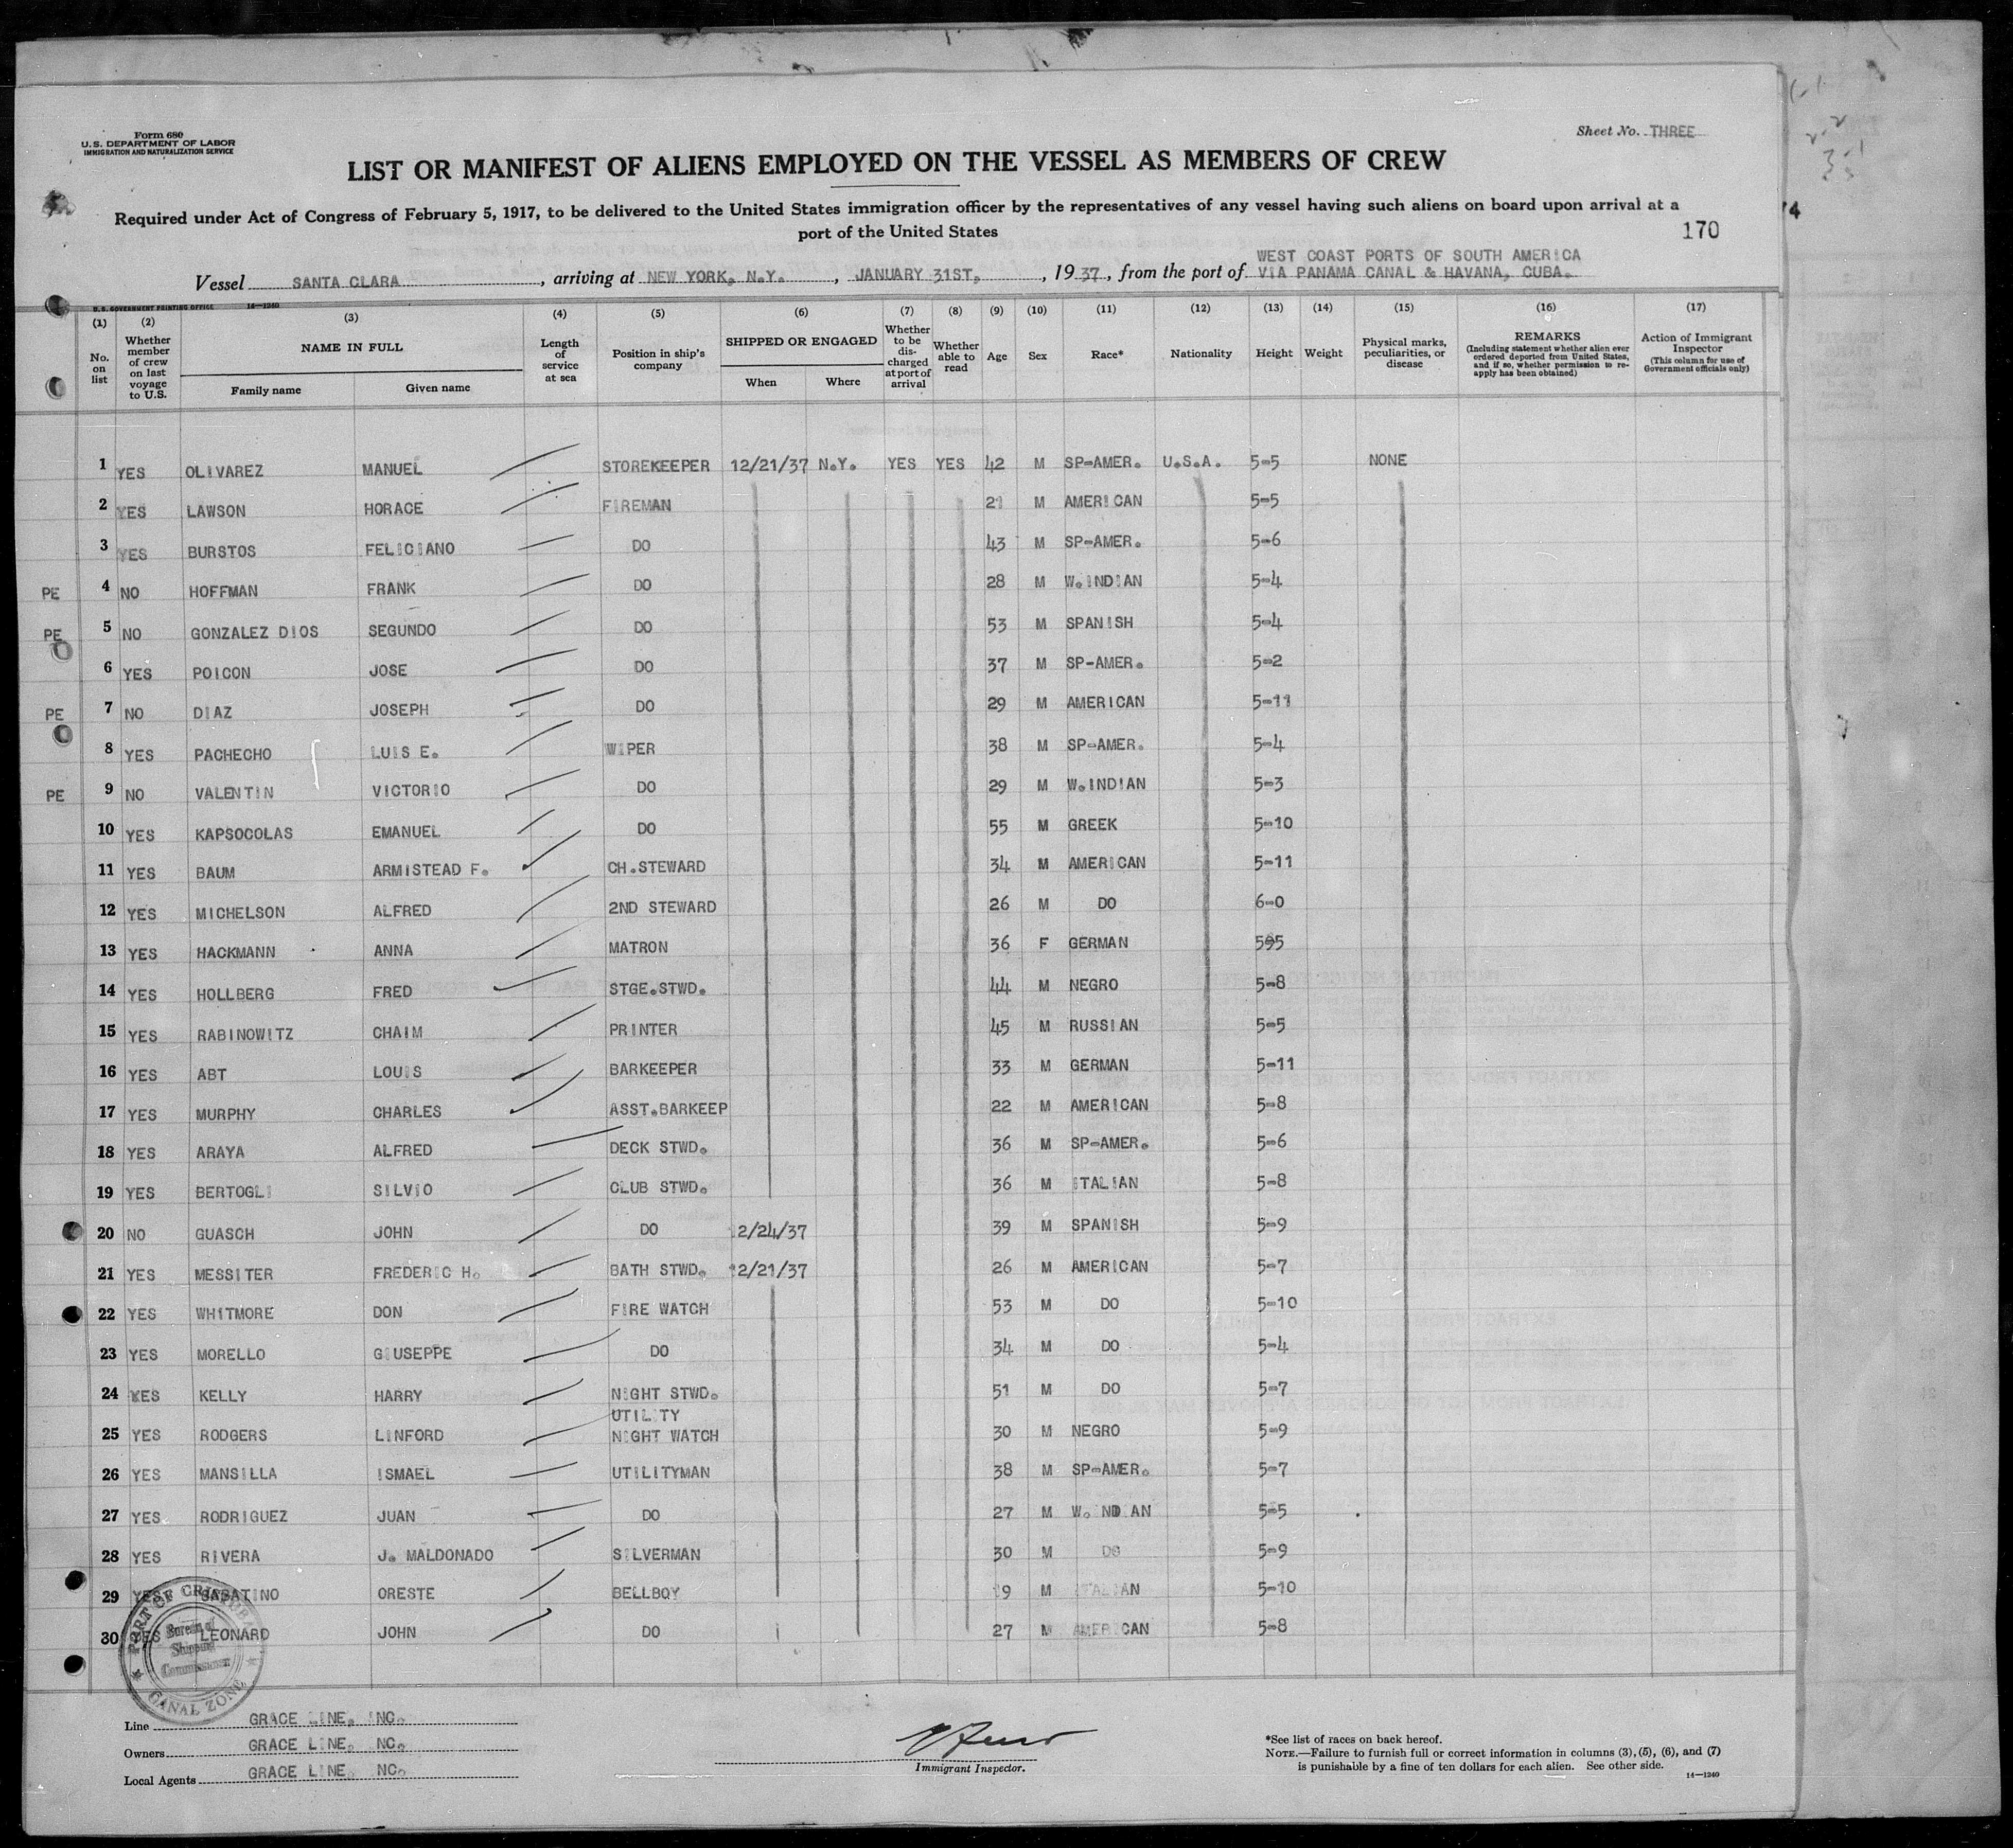 Form 680
U.S. DEPARTMENT OF LABOR
IMMIGRATION AND NATURALIZATION SERVICE
Sheet No. THREE
LIST OR MANIFEST OF ALIENS EMPLOYED ON THE VESSEL AS MEMBERS OF CREW
Required under Act of Congress of February 5, 1917, to be delivered to the United States immigration officer by the representatives of any vessel having such aliens on board upon arrival at a
port of the United States
170
74
WEST COAST PORTS OF SOUTH AMERICA
Vessel SANTA CLARA, arriving at NEW YORK, N.Y., JANUARY 31ST, , 1937, from the port of VIA PANAMA CANAL & HAVANA, CUBA.
U.S. GOVERNMENT PRINTING OFFICE 14—1240
(1) (2) (3) (4) (5) (6) (7) (8) (9) (10) (11) (12) (13) (14) (15) (16) (17)
No. on list
Whether member of crew on last voyage to U.S.
NAME IN FULL
Family name
Given name
Length of service at sea
Position in ship's company
SHIPPED OR ENGAGED
When
Where
Whether to be discharged at port of arrival
Whether able to read
Age
Sex
Race*
Nationality
Height
Weight
Physical marks, peculiarities, or disease
REMARKS
(Including statement whether alien ever ordered deported from United States, and if so, whether permission to re-apply has been obtained)
Action of Immigrant Inspector
(This column for use of Government officials only)
1 YES OLIVAREZ MANUEL STOREKEEPER 12/21/37 N.Y. YES YES 42 M SP-AMER. U.S.A. 5-5 NONE
2 YES LAWSON HORACE FIREMAN 21 M AMERICAN 5-5
3 YES BURSTOS FELICIANO DO 43 M SP-AMER. 5-6
PE 4 NO HOFFMAN FRANK DO 28 M W.INDIAN 5-4
PE 5 NO GONZALEZ DIOS SEGUNDO DO 53 M SPANISH 5-4
6 YES POICON JOSE DO 37 M SP-AMER. 5-2
PE 7 NO DIAZ JOSEPH DO 29 M AMERICAN 5-11
8 YES PACHECHO LUIS E. WIPER 38 M SP-AMER. 5-4
PE 9 NO VALENTIN VICTORIO DO 29 M W.INDIAN 5-3
10 YES KAPSOCOLAS EMANUEL DO 55 M GREEK 5-10
11 YES BAUM ARMISTEAD F. CH.STEWARD 34 M AMERICAN 5-11
12 YES MICHELSON ALFRED 2ND STEWARD 26 M DO 6-0
13 YES HACKMANN ANNA MATRON 36 F GERMAN 5-5
14 YES HOLLBERG FRED STGE.STWD. 44 M NEGRO 5-8
15 YES RABINOWITZ CHAIM PRINTER 45 M RUSSIAN 5-5
16 YES ABT LOUIS BARKEEPER 33 M GERMAN 5-11
17 YES MURPHY CHARLES ASST.BARKEEP 22 M AMERICAN 5-8
18 YES ARAYA ALFRED DECK STWD. 36 M SP-AMER. 5-6
19 YES BERTOGLI SILVIO CLUB STWD. 36 M ITALIAN 5-8
20 NO GUASCH JOHN DO 12/24/37 39 M SPANISH 5-9
21 YES MESSITER FREDERIC H. BATH STWD. 12/21/37 26 M AMERICAN 5-7
22 YES WHITMORE DON FIRE WATCH 53 M DO 5-10
23 YES MORELLO GIUSEPPE DO 34 M DO 5-4
24 YES KELLY HARRY NIGHT STWD. 51 M DO 5-7
UTILITY
25 YES RODGERS LINFORD NIGHT WATCH 30 M NEGRO 5-9
26 YES MANSILLA ISMAEL UTILITYMAN 38 M SP-AMER. 5-7
27 YES RODRIGUEZ JUAN DO 27 M W.INDIAN 5-5
28 YES RIVERA J. MALDONADO SILVERMAN 30 M DO 5-9
29 YES SABATINO ORESTE BELLBOY 19 M ITALIAN 5-10
30 YES LEONARD JOHN DO 27 M AMERICAN 5-8
PORT OF CRISTOBAL
Bureau of
Shipping
Commissioner
CANAL ZONE
Line GRACE LINE, INC.
Owners GRACE LINE, INC.
Local Agents GRACE LINE, INC.
Immigrant Inspector.
*See list of races on back hereof.
NOTE.—Failure to furnish full or correct information in columns (3), (5), (6), and (7)
is punishable by a fine of ten dollars for each alien. See other side.
14—1240